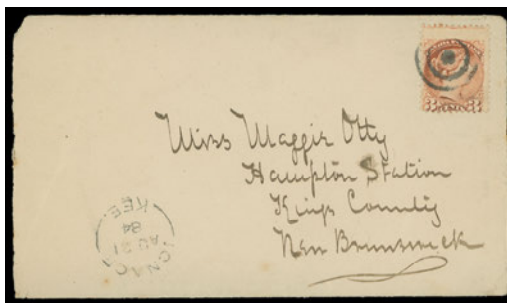 3 3
Miss Maggie Otty
Hampton Station
Kings County
New Brunswick
AU 21
84